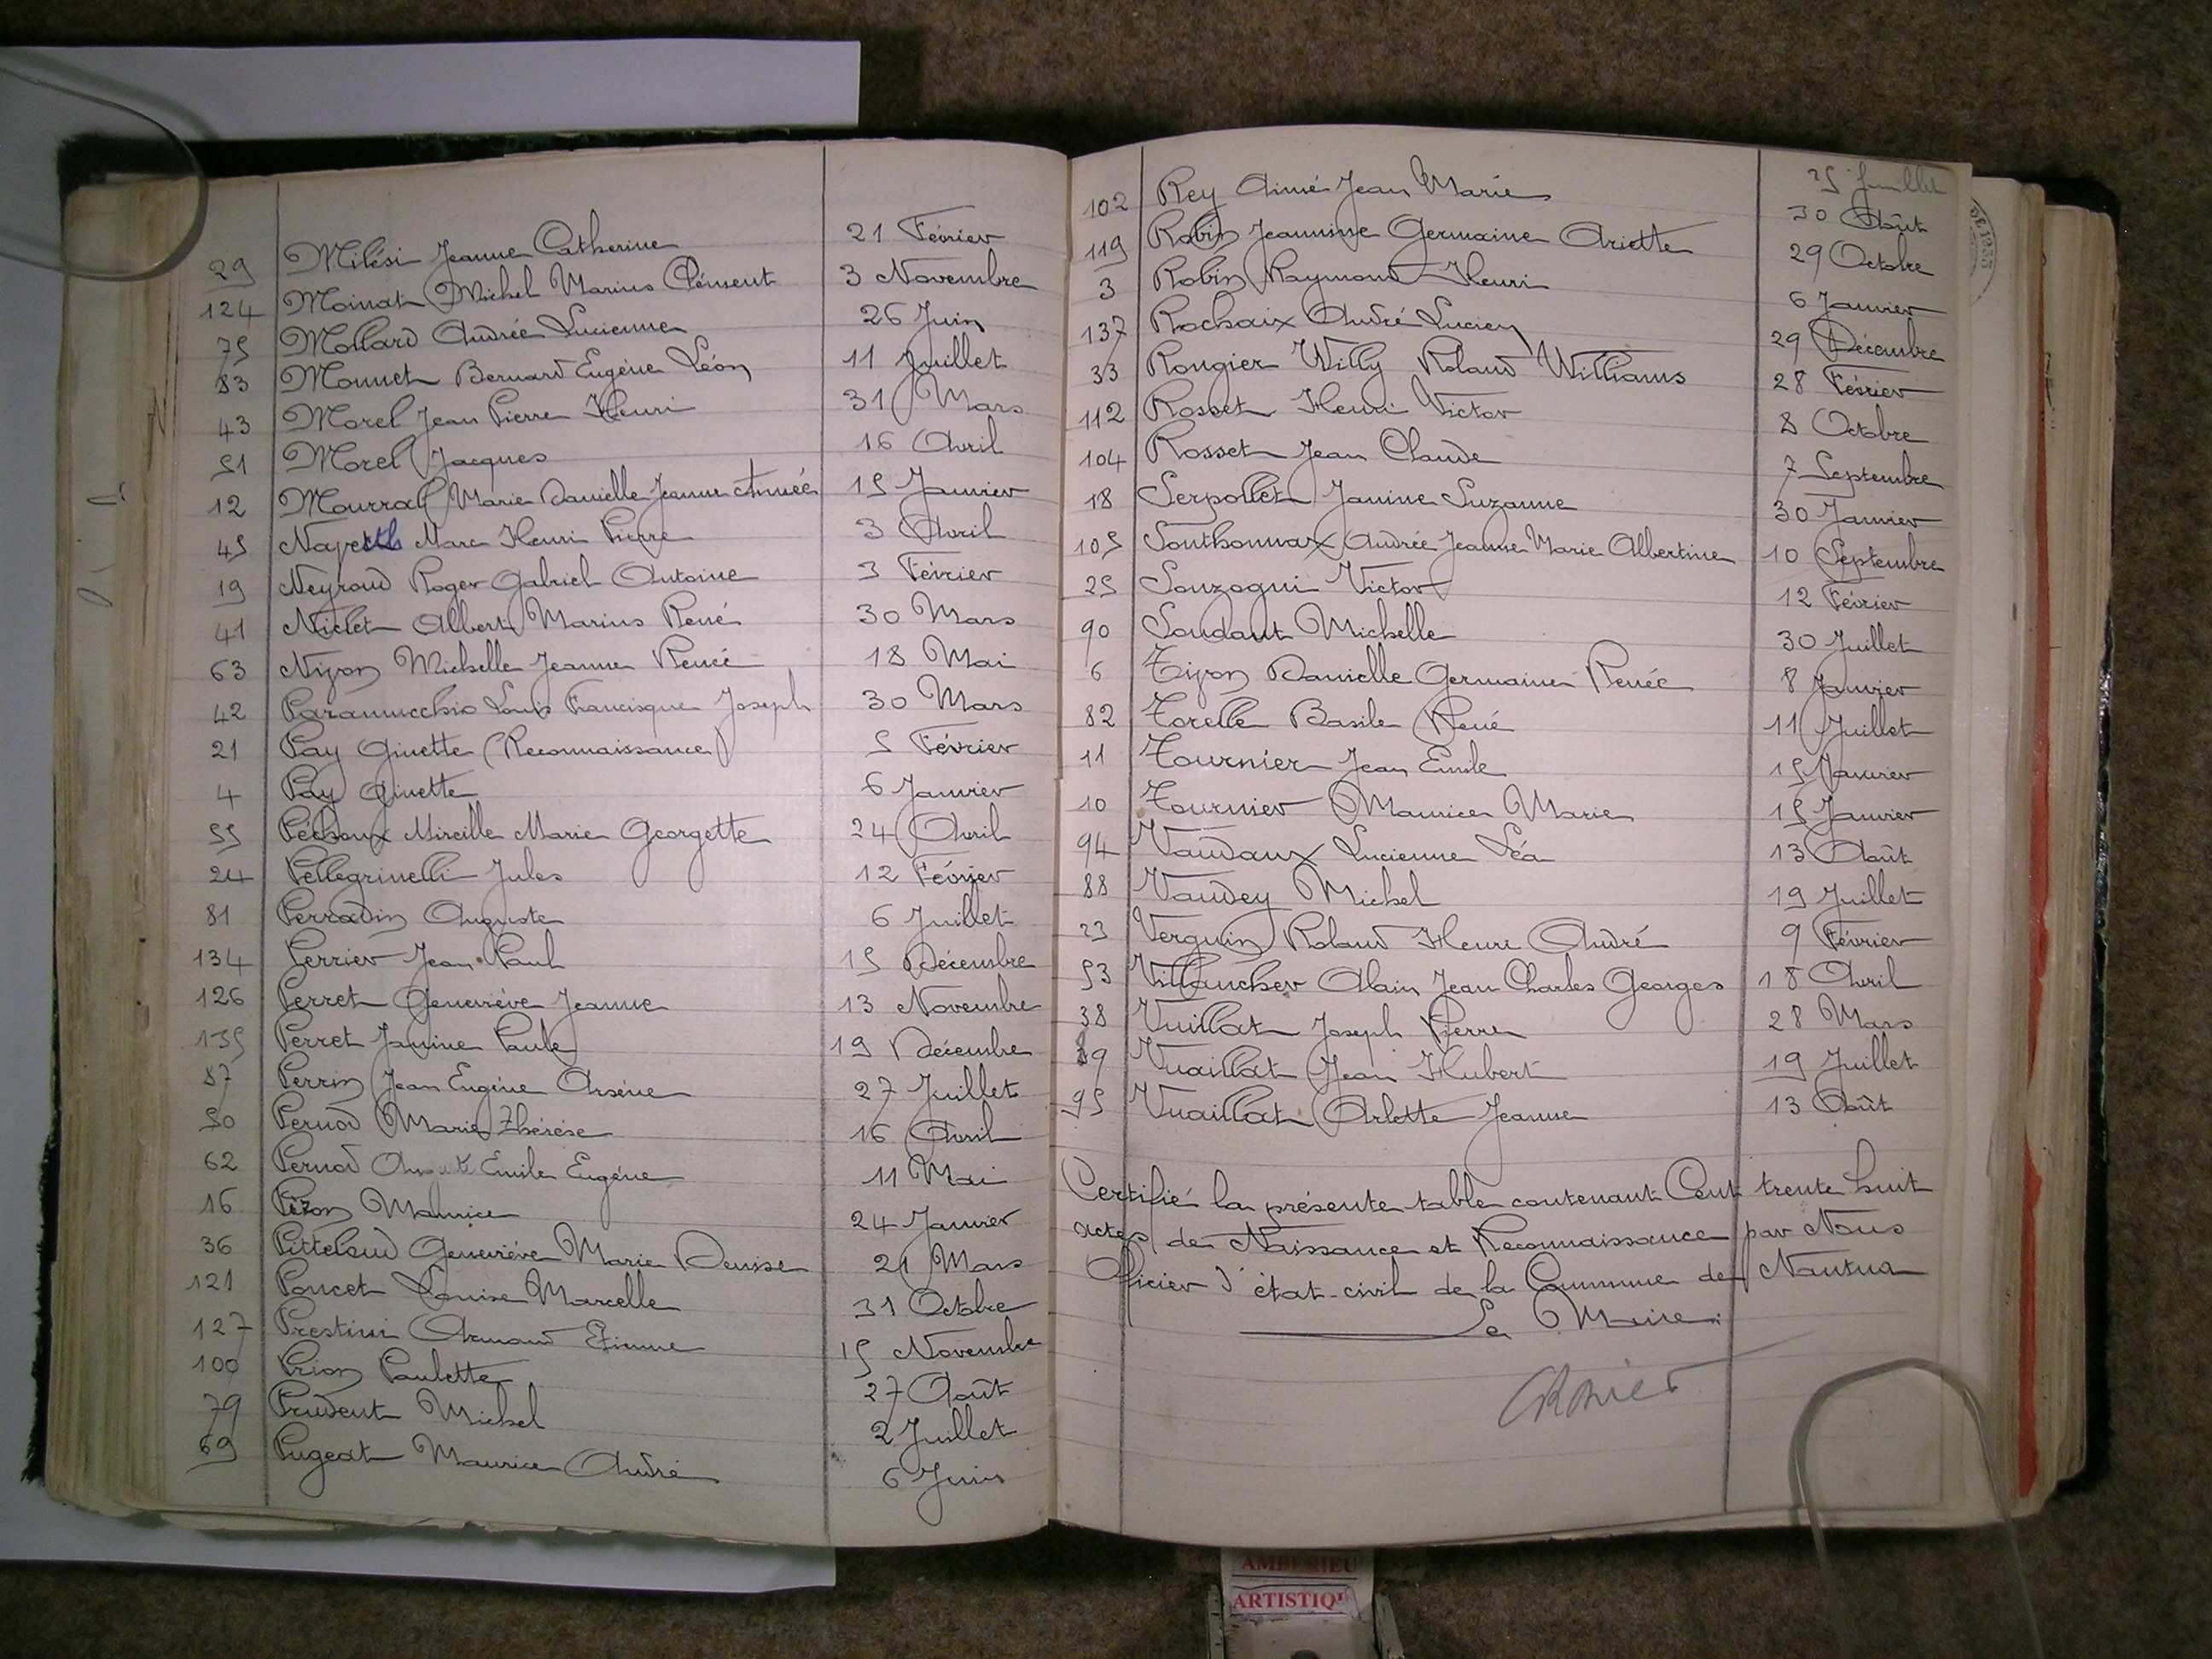 29 Milési Jeanne Catherine 21 Février
124 Moinat Michel Marius Clément 3 Novembre
75 Mollard Andrée Lucienne 26 Juin
83 Monnet Bernard Eugène Léon 11 Juillet
43 Morel Jean Pierre Henri 31 Mars
51 Morel Jacques 16 Avril
12 Mourral Marie Danielle Jeanne Aimée 15 Janvier
45 Marc Henri Pierre 3 Avril
19 Neyroud Roger Gabriel Antoine 3 Février
41 Niclet Albert Marius René 30 Mars
63 Nizon Michelle Jeanne Renée 18 Mai
42 Paranucchio Louis Francisque Joseph 30 Mars
21 Pay Ginette (Reconnaissance) 5 Février
4 Pay Ginette 6 Janvier
55 Péchoux Mireille Marie Georgette 24 Avril
24 Pellegrinelli Jules 12 Février
81 Perradin Auguste 6 Juillet
134 Perrier Jean-Paul 15 Décembre
126 Perret Geneviève Jeanne 13 Novembre
135 Perret Janine Paule 19 Décembre
87 Perrin Jean Eugène Arsène 27 Juillet
50 Pernod Marie Thérèse 16 Avril
62 Pernod Emile Eugène 11 Mai
16 Maurice 24 Janvier
36 Pittelsud Geneviève Marie Denise 21 Mars
121 Poncet Louise Marcelle 31 Octobre
127 Prestini Armand Etienne 15 Novembre
100 Prion Paulette 27 Août
79 Prudent Michel 2 Juillet
69 Pugeat Maurice André 6 Juin
102 Rey Aimé Jean Marie 25 Juillet
119 Robin Jeannine Germaine Ariette 30 Août
3 Robin Raymond Henri 29 Octobre
137 Rochaix André Lucien 6 Janvier
33 Rongier Willy Roland Williams 29 Décembre
112 Rosset Henri Victor 28 Février
104 Rosset Jean Claude 8 Octobre
18 Serpollet Janine Suzanne 7 Septembre
105 Southonnax Andrée Jeanne Marie Albertine 30 Janvier
25 Souzogni Victor 10 Septembre
90 Soudant Michelle 12 Février
6 Tizon Danielle Germaine Renée 30 Juillet
82 Torelle Basile René 8 Janvier
11 Tournier Jean Emile 11 Juillet
10 Tournier Maurice Marie 15 Janvier
94 Vaudaux Lucienne Léa 15 Janvier
88 Vaudey Michel 13 Août
23 Verguin Roland Henri André 19 Juillet
53 Villancher Alain Jean Charles Georges 9 Février
38 Vuillat Joseph Pierre 18 Avril
89 Vuaillat Jean Hubert 28 Mars
95 Vuaillat Arlette Jeanne 19 Juillet
13 Août
Certifié la présente table contenant Cent trente huit
actes de Naissance et Reconnaissance par Nous
Officier d'état-civil de la Commune de Nantua
Le Maire.
AMBERIEU
ARTISTIQ